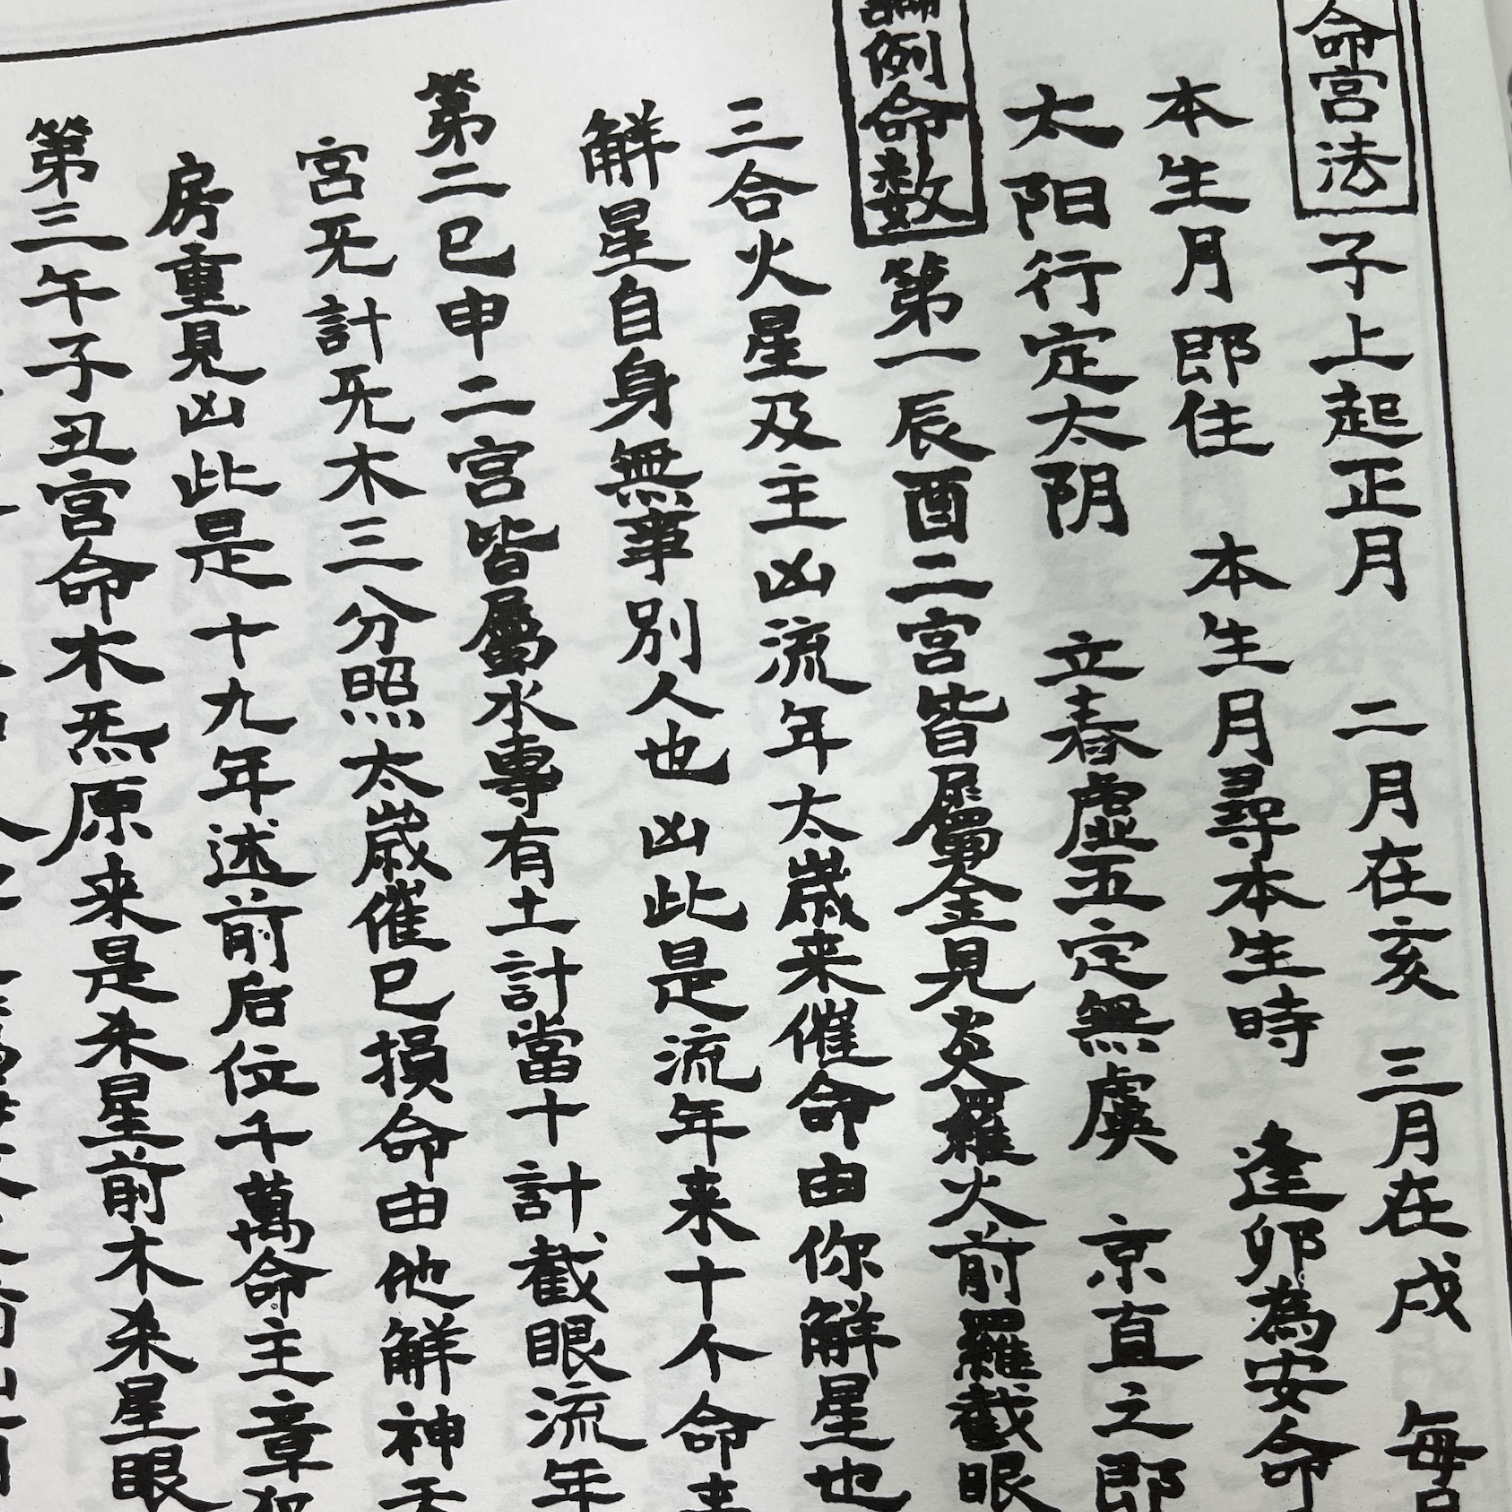 命宮法 子上起正月 二月在亥 三月在戌 每
本生月郎住 本生月尋本生時 逢卯為安命
太阳行定太阴 立春虛五定無虞 京直之郎
例命数 第一辰酉二宮皆屬金見炎羅火前羅截眼
三合火星及主凶流年太歲来催命由你觧星也
觧星自身無事別人也凶此是流年来十个命
第二巳申二宮皆屬水專有土計當十計截眼流年
宮旡計旡木三分照太歲催巳損命由他觧神
房重見凶此是十九年述前后位千萬命主章
第三午子丑宮命木炁原来是木星前木木星眼